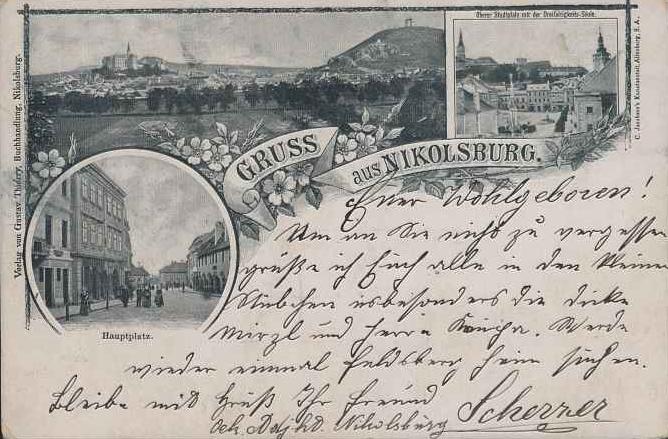 Oberer Stadtplatz mit der Dreifaltigkeits-Säule.
Verlag von Gustav Thiery, Buchhandlung, Nikolsburg.
C. Jacobsen's Kunstanstalt, Altenburg, S. A.
GRUSS aus NIKOLSBURG.
Hauptplatz.
Euer Wohlgeboren!
Um an Sie nicht zu vergessen
grüße ich Euch alle in den kleinen
Stübchen insbesonders die dicke
Mirzl und Herrn. Werde
wieder einmal Feldsberg heim suchen.
Bleibe mit Gruß Ihr Freund
Nikolsburg Scherzer